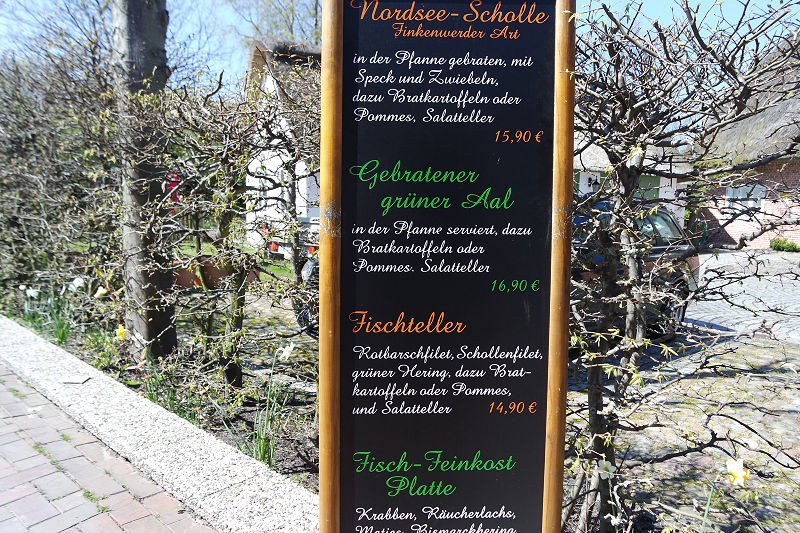 Nordsee-Scholle
Finkenwerder Art
in der Pfanne gebraten, mit
Speck und Zwiebeln,
dazu Bratkartoffeln oder
Pommes, Salatteller
15,90 €
Gebratener
grüner Aal
in der Pfanne serviert, dazu
Bratkartoffeln oder
Pommes. Salatteller
16,90 €
Fischteller
Rotbarschfilet, Schollenfilet,
grüner Hering, dazu Brat-
kartoffeln oder Pommes,
und Salatteller 14,90 €
Fisch-Feinkost
Platte
Krabben, Räucherlachs,
Matjes, Bismarckhering